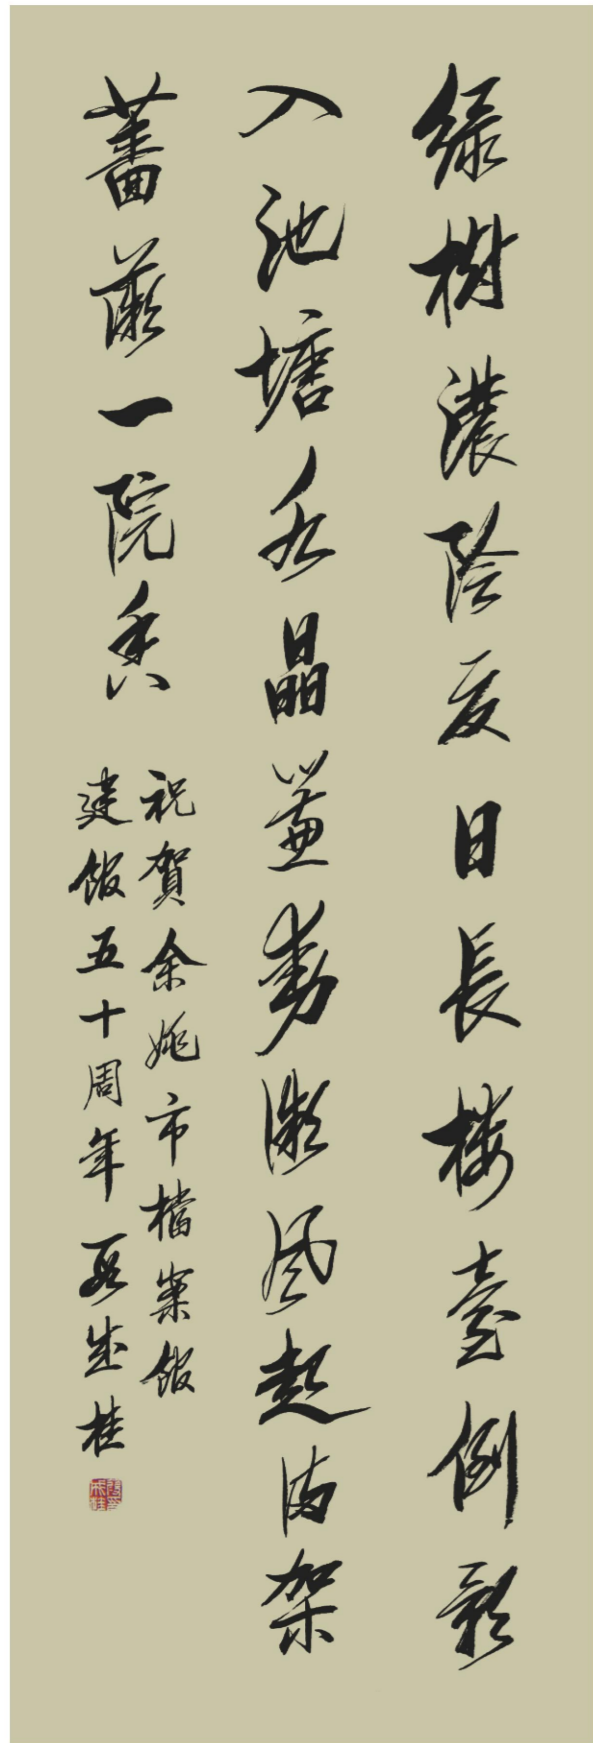 绿樹濃陰夏日長楼臺倒影
入池塘水晶簾動微風起满架
薔薇一院香
祝賀余姚市檔案館
建館五十周年 成桂